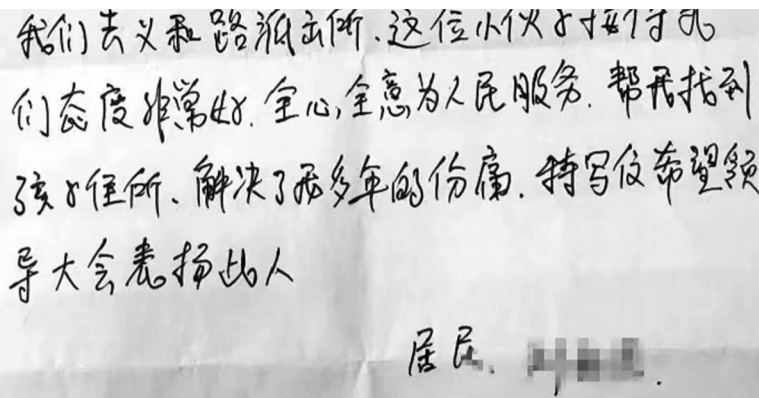 我们去义和路派出所、这位小伙子接待我
们态度非常好.全心,全意为人民服务.帮我找到
孩子住所、解决了我多年的伤痛.特写信希望领
导大会表扬此人
居民、